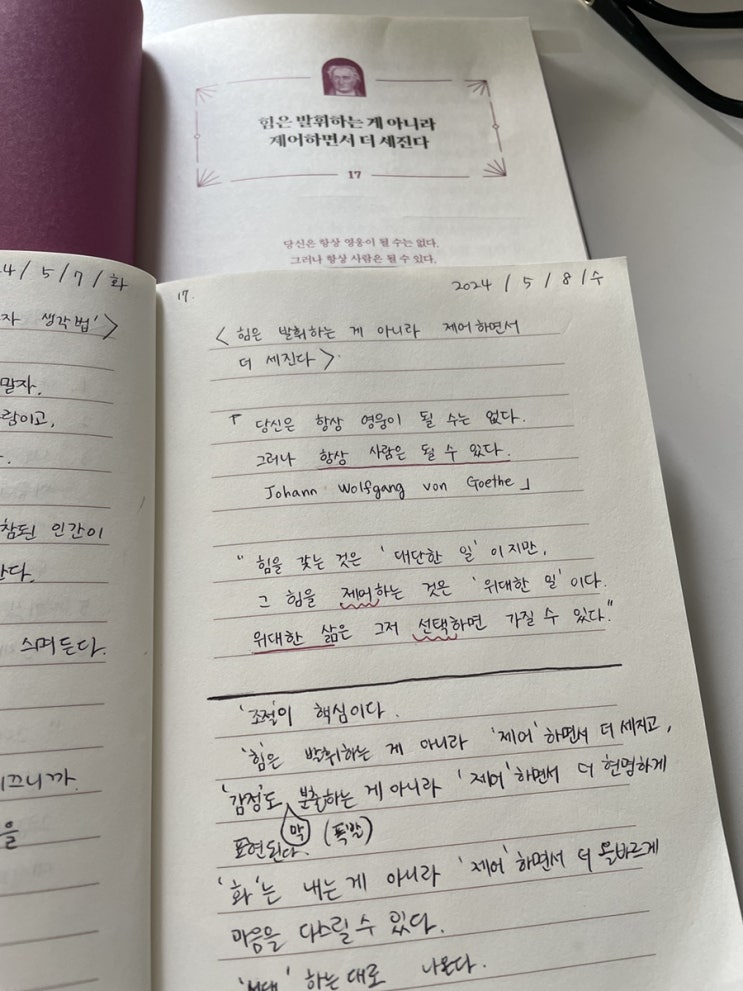 힘은 발휘하는 게 아니라
제어하면서 더 세진다
17
당신은 항상 영웅이 될 수는 없다.
그러나 항상 사람은 될 수 있다.
4/5/7/화
자 생각법'>
말자.
람이고,
참된 인간이
스며든다.
17.
2024/5/8/수
<힘은 발휘하는 게 아니라 제어하면서
더 세진다>
「당신은 항상 영웅이 될 수는 없다.
그러나 항상 사람은 될 수 있다.
Johann Wolfgang von Goethe」
"힘을 갖는 것은 '대단한 일'이지만,
그 힘을 제어하는 것은 '위대한 일'이다.
위대한 삶은 그저 선택하면 가질 수 있다."
'조절'이 핵심이다.
'힘'은 발휘하는 게 아니라 '제어'하면서 더 세지고,
'감정'도 막 분출하는 게 아니라 '제어'하면서 더 현명하게
표현된다. (폭발)
'화'는 내는 게 아니라 '제어'하면서 더 올바르게
마음을 다스릴 수 있다.
하는 대로 나온다.